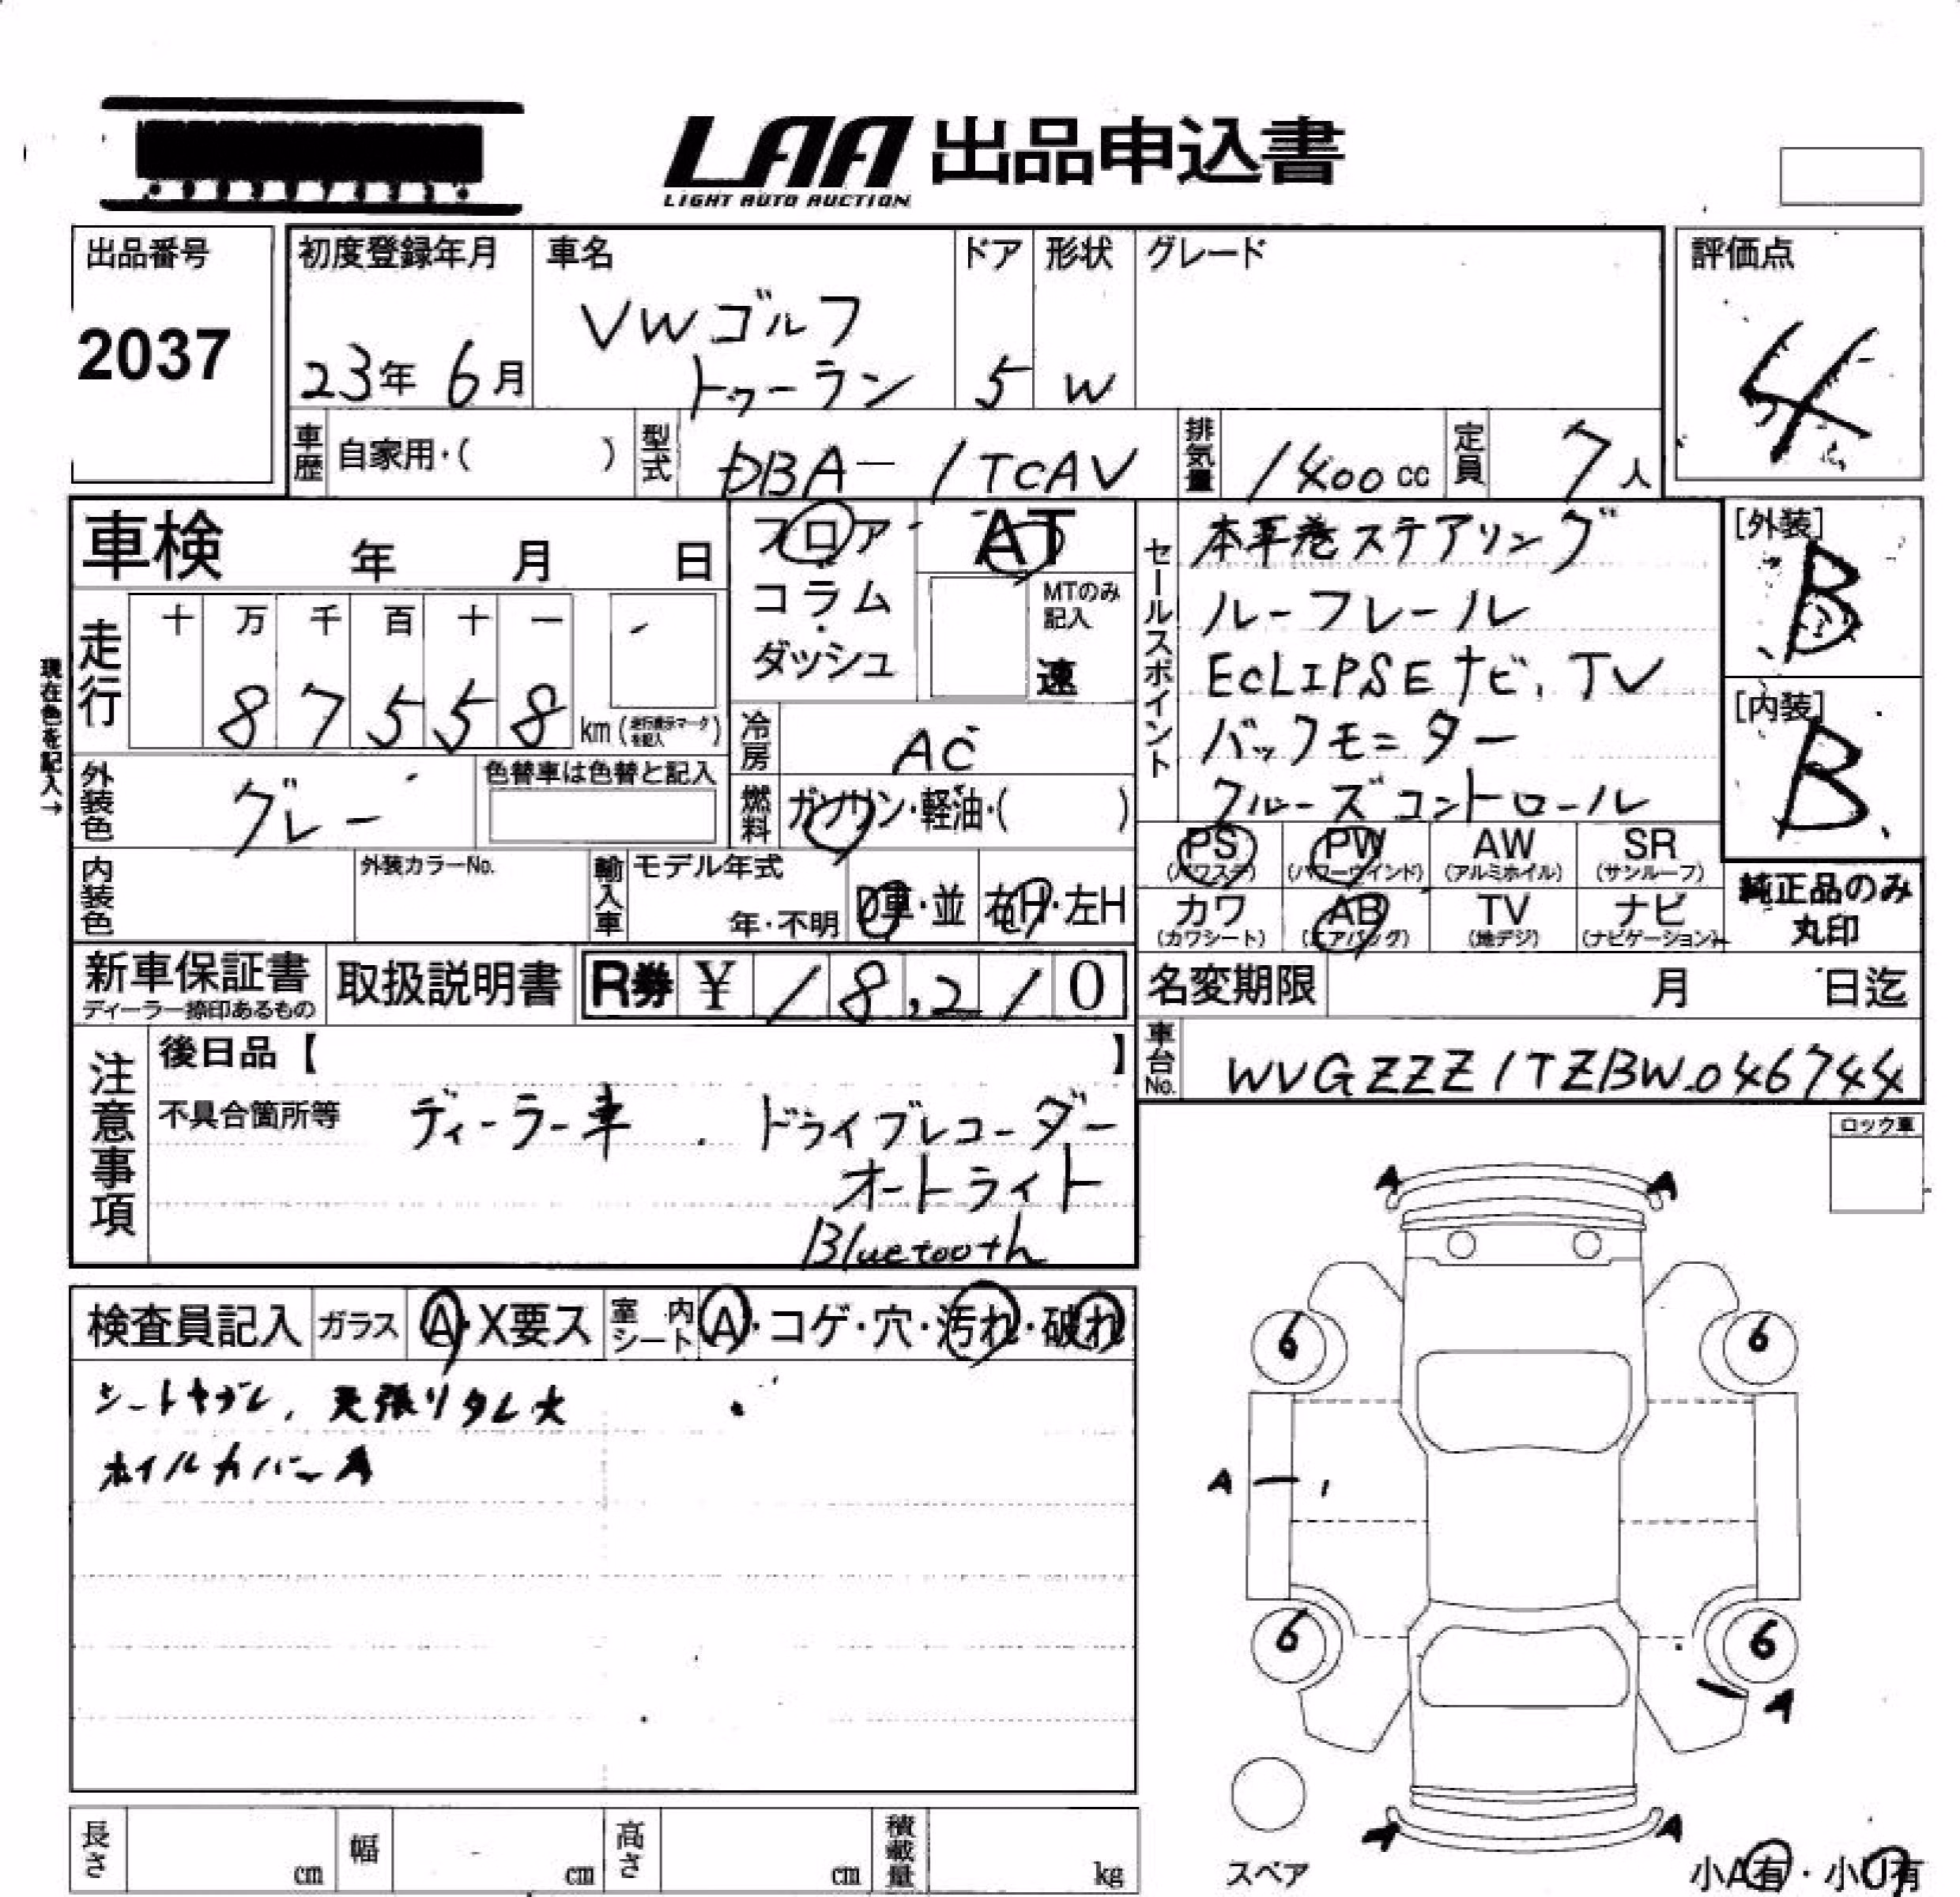 LAA 出品申込書
LIGHT AUTO AUCTION
出品番号 初度登録年月 車名 ドア 形状 グレード 評価点
2037 23年 6月 VWゴルフ
トゥーラン 5 W 4
車歴 自家用・( ) 型式 DBA-1TCAV 排気量 1400cc 定員 7人
車検 年 月 日
フロア
コラム
・
ダッシュ
AT
MTのみ
記入
速
走行 十 万 千 百 十 一
87558 km(走行表示マークを記入)
現在色を記入→
外装色 グレー 色替車は色替と記入
冷房 AC
燃料 ガソリン・軽油・( )
内装色 外装カラーNo. 輸入車 モデル年式
年・不明 D車・並 右H・左H
セールスポイント
本革巻ステアリング
ルーフレール
ECLIPSEナビ、TV
バックモニター
クルーズコントロール
[外装]
B
[内装]
B
PS PW AW SR
(パワステ) (パワーウインド) (アルミホイル) (サンルーフ)
カワ AB TV ナビ
(カワシート) (エアバッグ) (地デジ) (ナビゲーション)
純正品のみ
丸印
新車保証書 取扱説明書 R券 ¥ 18,210
ディーラー捺印あるもの
名変期限 月 日迄
車台No. WVGZZZ1TZBW046744
注意事項
後日品【 】
不具合箇所等 ディーラー車 ドライブレコーダー
オートライト
Bluetooth
ロック車
検査員記入 ガラス A・X要ス 室内シート A・コゲ・穴・汚れ・破れ
シートヤブレ、天張りタレ大
ホイルカバーA
A A
6 6
A
6 6
A
A A
スペア
小A有・小U有
長さ cm 幅 cm 高さ cm 積載量 kg